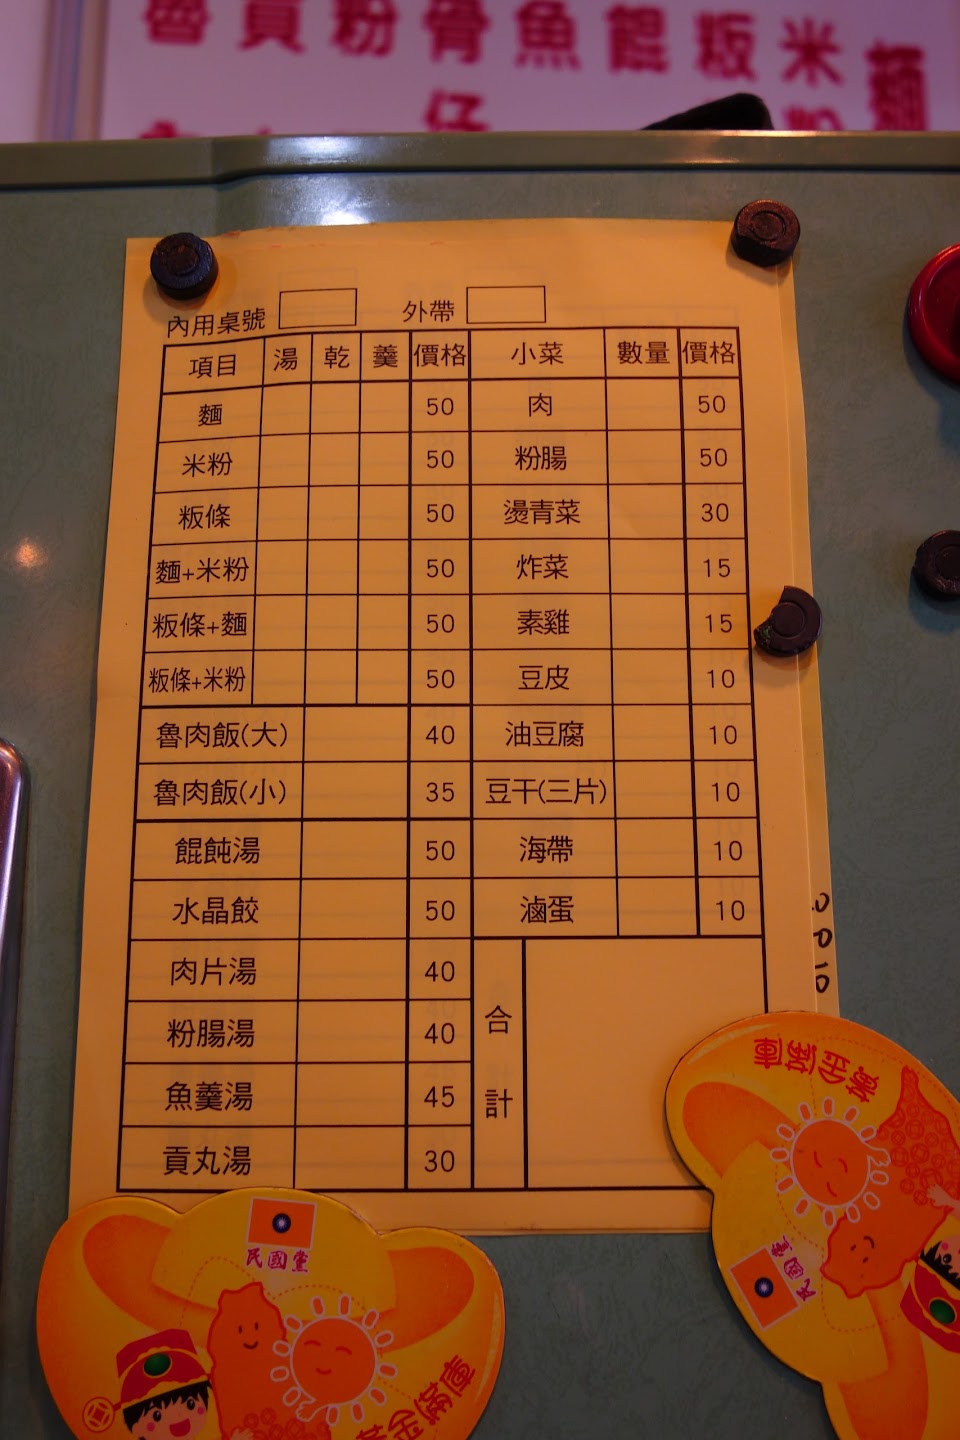 魯貢粉骨魚餛粄米麵
仔
內用桌號 外帶
項目 湯 乾 羹 價格 小菜 數量 價格
麵 50 肉 50
米粉 50 粉腸 50
粄條 50 燙青菜 30
麵+米粉 50 炸菜 15
粄條+麵 50 素雞 15
粄條+米粉 50 豆皮 10
魯肉飯(大) 40 油豆腐 10
魯肉飯(小) 35 豆干(三片) 10
餛飩湯 50 海帶 10
水晶餃 50 滷蛋 10
肉片湯 40
粉腸湯 40
魚羹湯 45
貢丸湯 30
合計
民國黨
黃金滿庫
民國黨